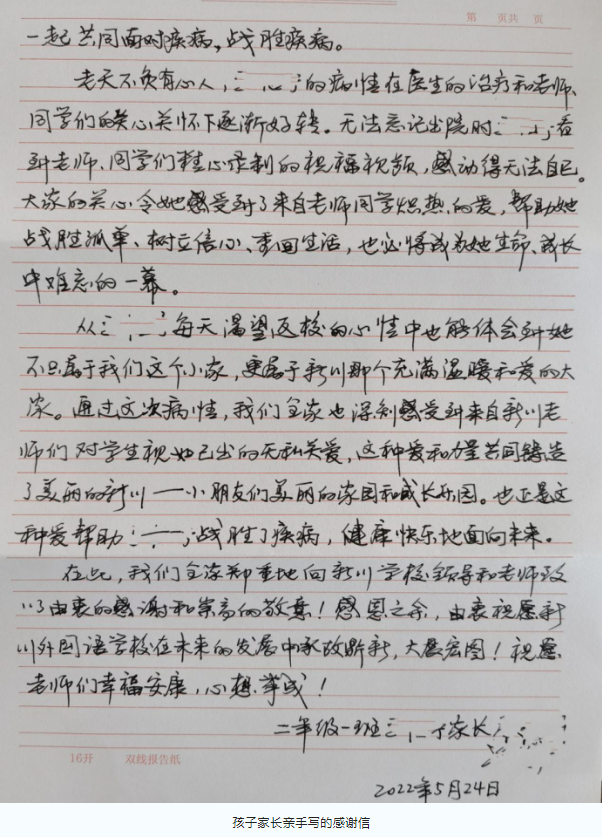 第 页共 页
一起共同面对疾病,战胜疾病。
老天不负有心人,的病情在医生的治疗和老师、
同学们的关心关怀下逐渐好转。无法忘记出院时看
到老师、同学们精心录制的祝福视频,感动得无法自已。
大家的关心令她感受到了来自老师同学炽热的爱,帮助她
战胜孤单、树立信心、重回生活,也必将成为她生命、成长
中难忘的一幕。
从每天渴望返校的心情中也能体会到她
不只属于我们这个小家,更属于新川那个充满温暖和爱的大
家。通过这次病情,我们全家也深刻感受到来自新川老
师们对学生视如己出的无私关爱,这种爱和力量共同铸造
了美丽的新川——小朋友们美丽的家园和成长乐园。也正是这
种爱帮助战胜了疾病,健康快乐地面向未来。
在此,我们全家郑重地向新川学校领导和老师致
以由衷的感谢和崇高的敬意!感恩之余,由衷祝愿新
川外国语学校在未来的发展中承故鼎新,大展宏图!祝愿
老师们幸福安康,心想事成!
二年级一班家长
16开 双线报告纸
2022年5月24日
孩子家长亲手写的感谢信